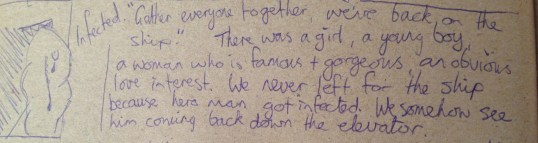 Infected. "Gather everyone together, we're back on the
ship." There was a girl, a young boy,
a woman who is famous + gorgeous, an obvious
love interest. We never left for the ship
because hero man got infected. We somehow see
him coming back down the elevator.